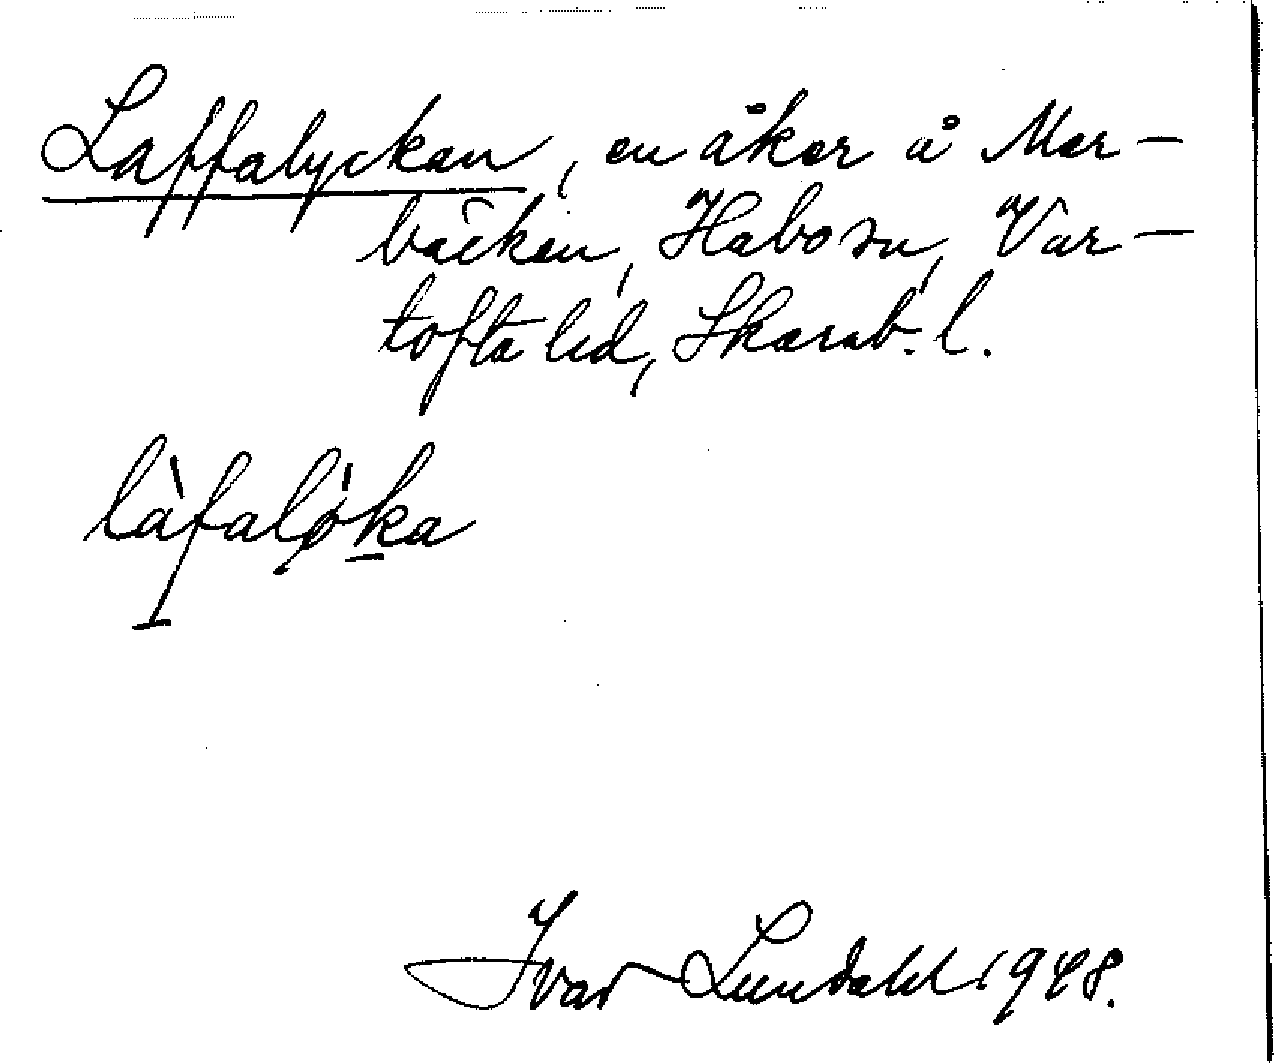 Laffalyckan, en åker å Mar-
bäcken, Habo sn, Var-
tofta hd, Skarab. l.
làfalø̀ka
Ivar Lundahl 1948.